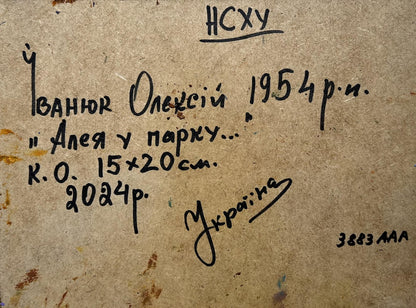 НСХУ
Їванюк Олексій 1954р.н.
"Алея у парку..."
к.о. 15×20см.
2024р.
Україна
3883ААА